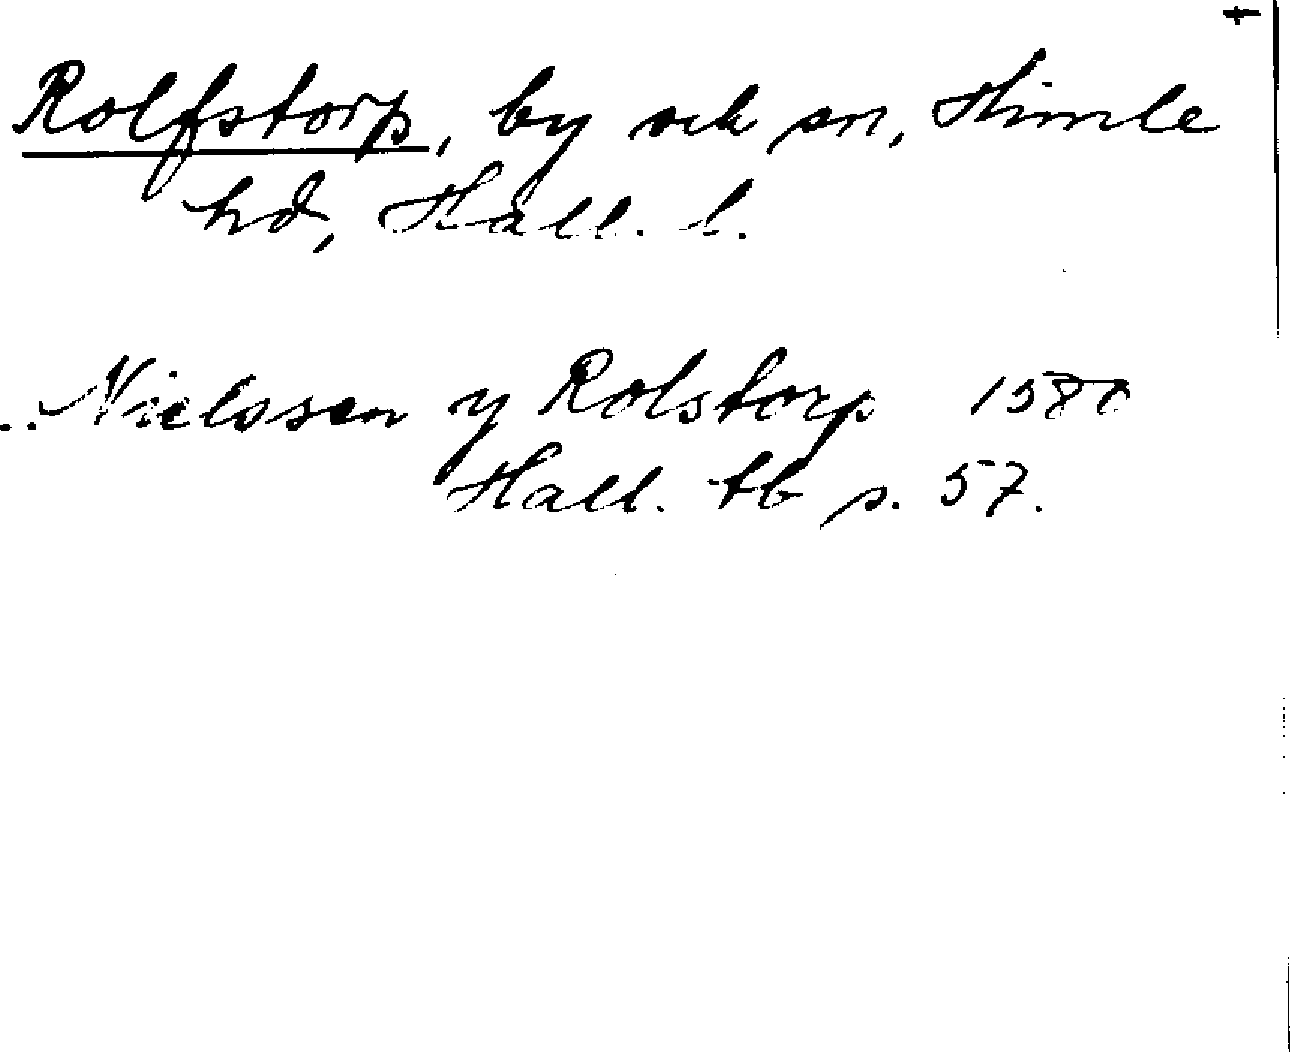 Rolfstorp, by och sn, Himle
hd, Hall. l.
.. Nielssen y Rolstorp 1580
Hall. tb s. 57.